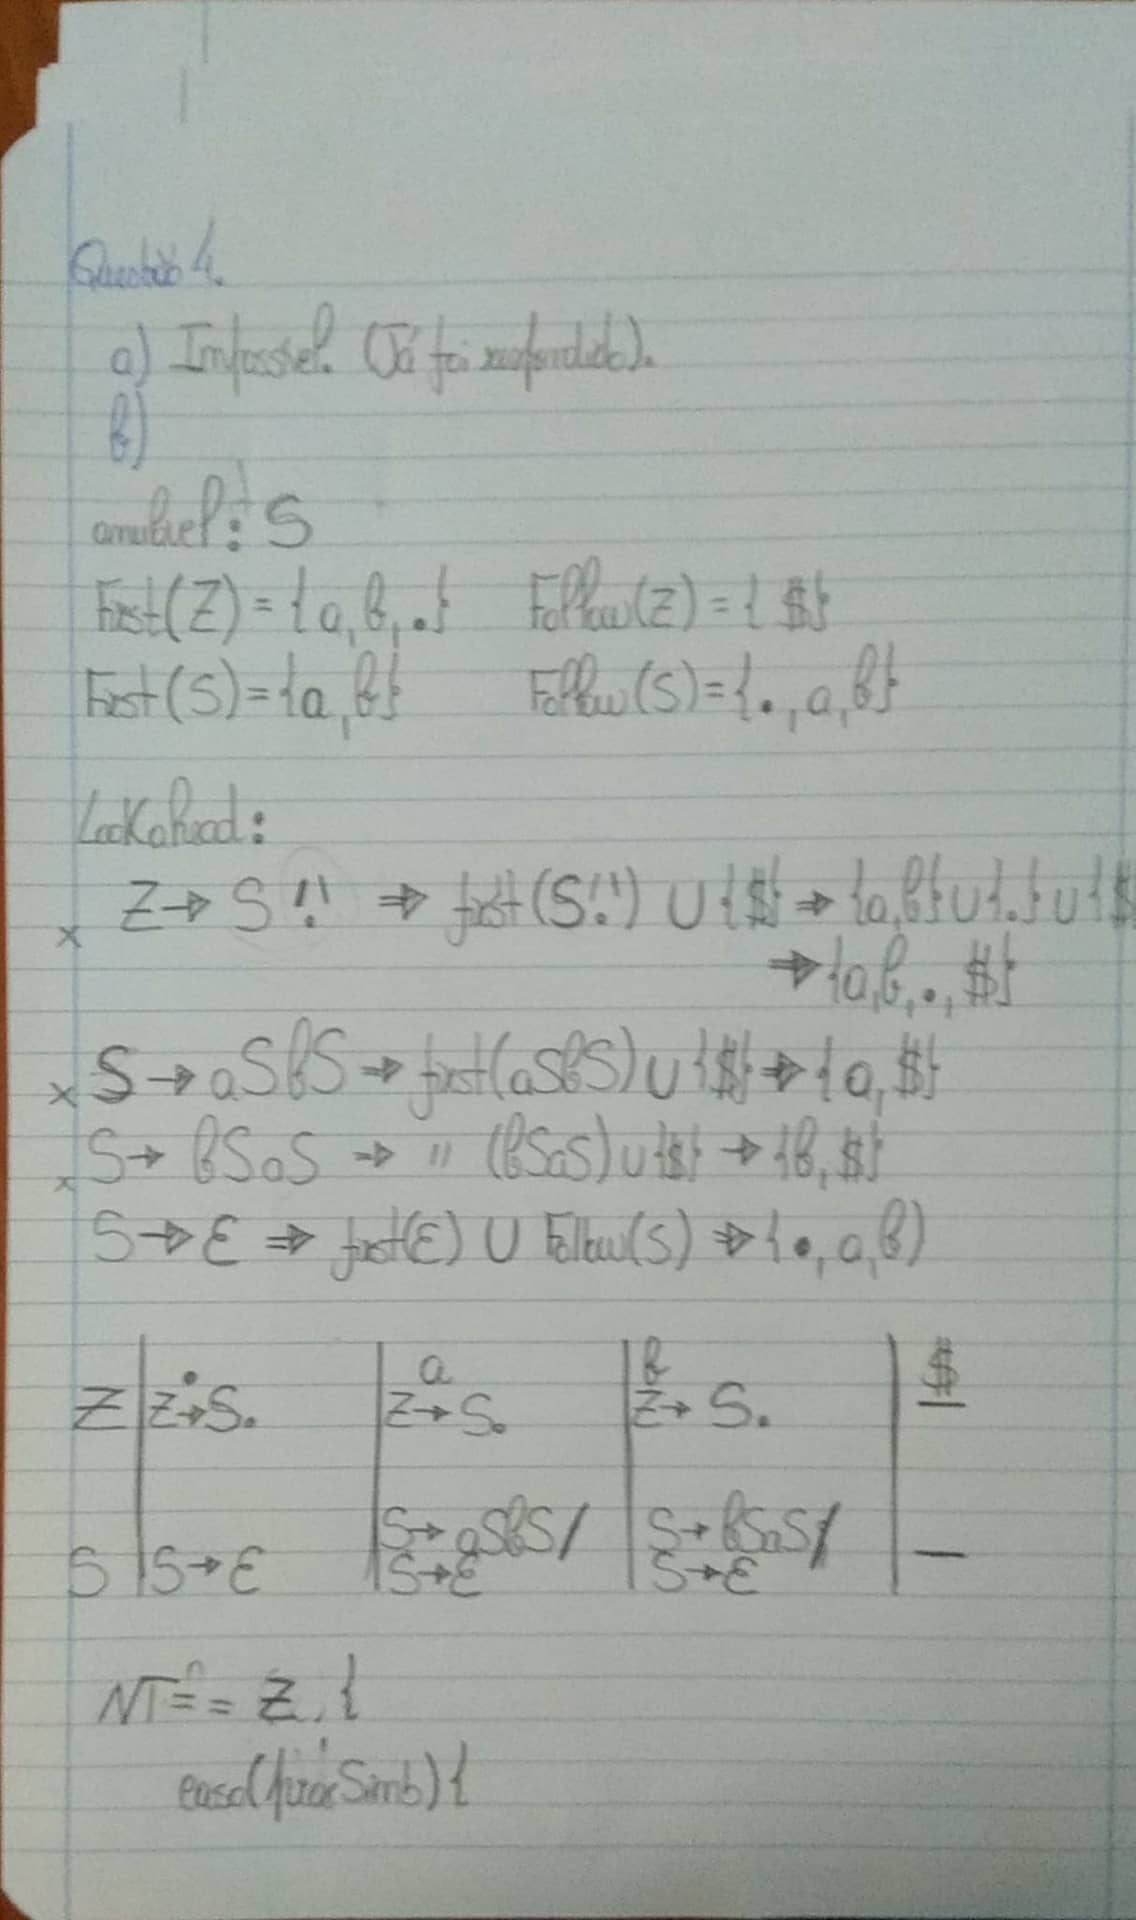 Questão 4.
a) Impossível. (Já foi respondido).
b)
anulável: S
First(Z) = {a, b, .} Follow(Z) = { $}
First(S) = {a, b} Follow(S) = {., a, b}
Lookahead:
x Z → S '.' ⇒ first(S'.') ∪ {$} ⇒ {a, b} ∪ {.} ∪ {$
⇒ {a, b, ., $}
x S → aSbS ⇒ first(aSbS) ∪ {$} ⇒ {a, $}
x S → bSaS ⇒ " (bSaS) ∪ {$} → {b, $}
S → ε ⇒ first(ε) ∪ Follow(S) ⇒ {., a, b)
. a b $
Z Z→S. Z→S. Z→ S. —
S→aSbS/ S→bSaS/
S S→ε S→ε S→ε —
NT == Z, {
case(proxSimb) {